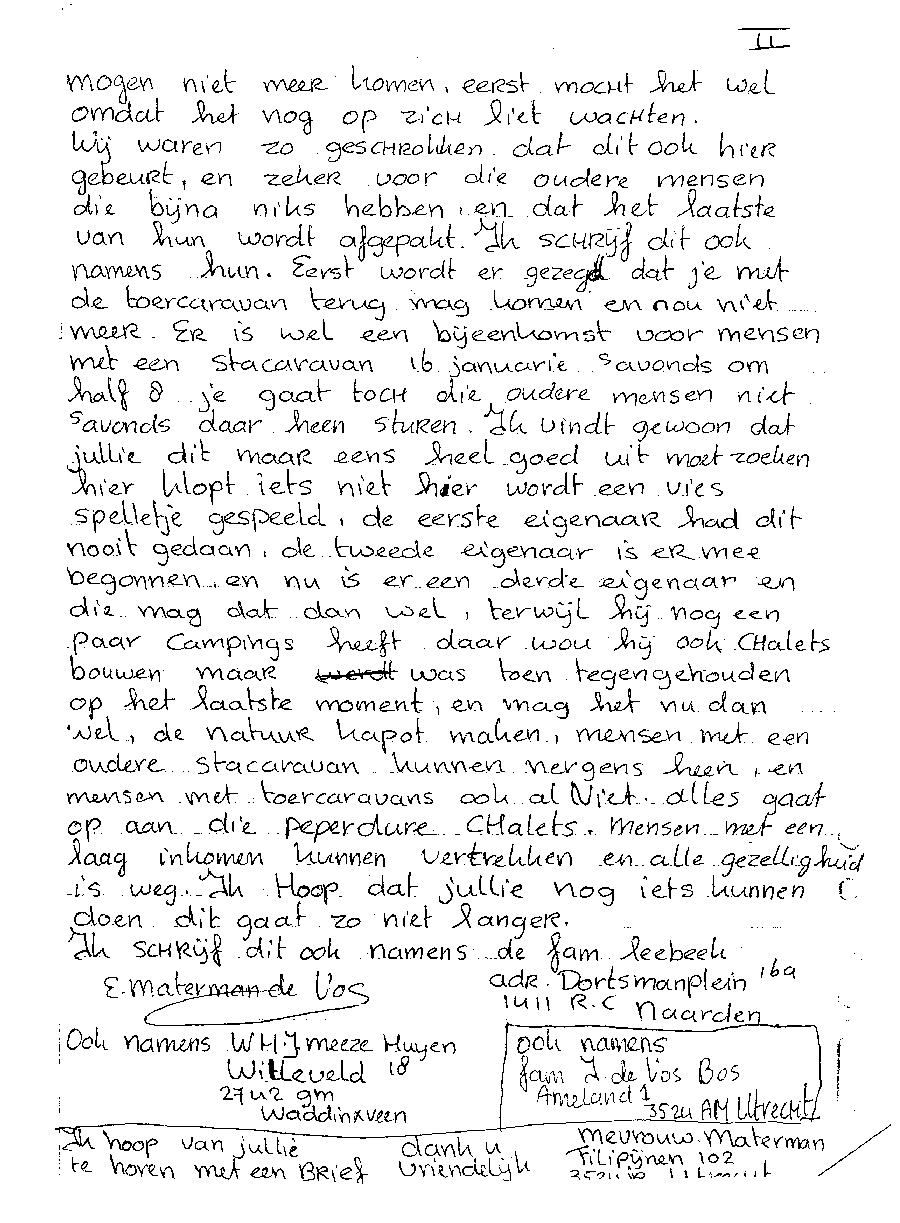 II
mogen niet meer komen, eerst mocht het wel
omdat het nog op zich liet wachten.
Wij waren zo geschrokken dat dit ook hier
gebeurt, en zeker voor die oudere mensen
die bijna niks hebben, en dat het laatste
van hun wordt afgepakt. Ik schrijf dit ook
namens hun. Eerst wordt er gezegd dat je met
de toercaravan terug mag komen en nou niet
meer. Er is wel een bijeenkomst voor mensen
met een stacaravan 16 januarie s'avonds om
half 8 je gaat toch die oudere mensen niet
s'avonds daar heen sturen. Ik vindt gewoon dat
jullie dit maar eens heel goed uit moet zoeken
hier klopt iets niet hier wordt een vies
spelletje gespeeld, de eerste eigenaar had dit
nooit gedaan, de tweede eigenaar is er mee
begonnen en nu is er een derde eigenaar en
die mag dat dan wel, terwijl hij nog een
paar campings heeft daar wou hij ook CHalets
bouwen maar was toen tegengehouden
op het laatste moment, en mag het nu dan
wel, de natuur kapot maken, mensen met een
oudere stacaravan kunnen nergens heen, en
mensen met toercaravans ook al Niet. alles gaat
op aan die peperdure CHalets. mensen met een
laag inkomen kunnen vertrekken en alle gezelligheid
is weg. Ik Hoop dat jullie nog iets kunnen
doen dit gaat zo niet langer.
Ik schrijf dit ook namens de fam leebeek
adr. Dortsmanplein 16a
1411 R.C Naarden
E. Materman de Vos
Ook namens W H J meeze Huyen
Witteveld 18
2742 gm
Waddinxveen
ook namens
fam J. de Vos Bos
Ameland 1
3524 AM Utrecht
Ik hoop van jullie
te horen met een Brief
dank u
vriendelijk
mevrouw Materman
Filipijnen 102